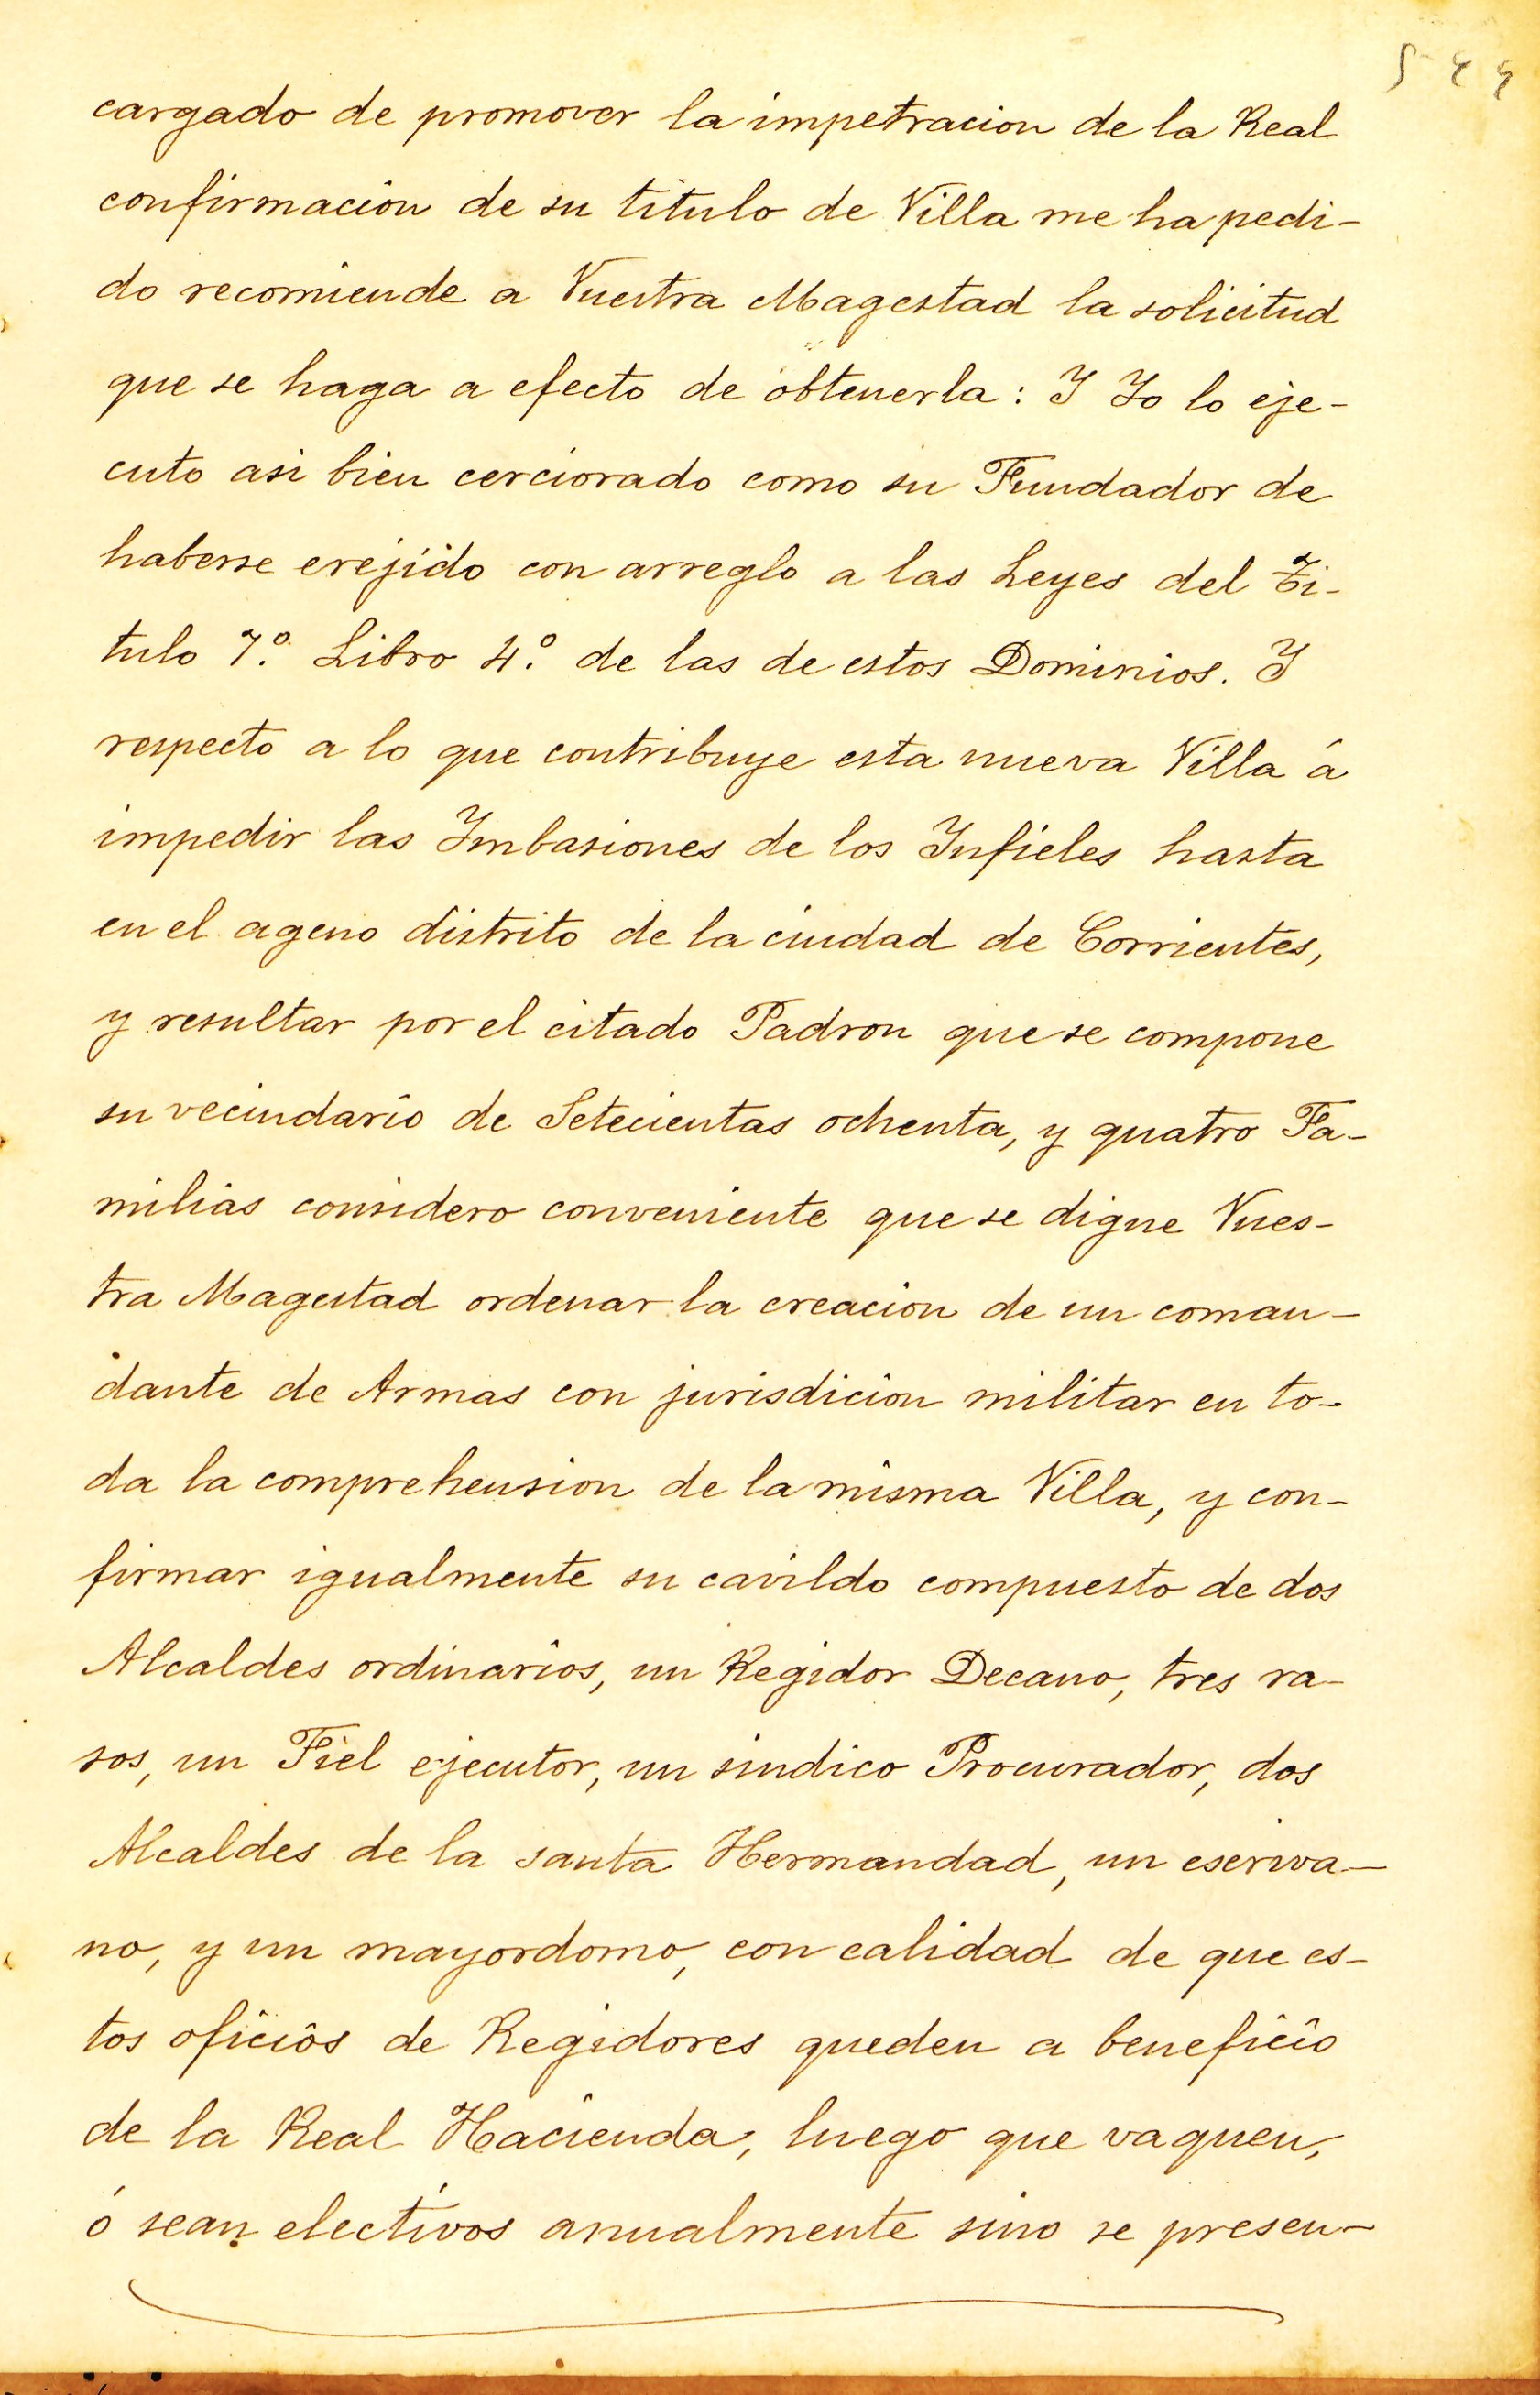 544
cargado de promover la impetracion de la Real
confirmacion de su titulo de Villa me ha pedi-
do recomiende a Vuestra Magestad la solicitud
que se haga a efecto de obtenerla: I Io lo eje-
cuto asi bien cerciorado como su Fundador de
haberse erejido con arreglo a las Leyes del Ti-
tulo 7.º Libro 4.º de las de estos Dominios. I
respecto a lo que contribuye esta nueva Villa á
impedir las Imbasiones de los Infieles hasta
en el ageno distrito de la ciudad de Corrientes,
y resultar por el citado Padron que se compone
su vecindario de Setecientas ochenta, y quatro Fa-
milias considero conveniente que se digne Vues-
tra Magestad ordenar la creacion de un coman-
dante de Armas con jurisdicion militar en to-
da la comprehension de la misma Villa, y con-
firmar igualmente su cavildo compuesto de dos
Alcaldes ordinarios, un Regidor Decano, tres ra-
sos, un Fiel ejecutor, un sindico Procurador, dos
Alcaldes de la santa Hermandad, un escriva-
no, y un mayordomo, con calidad de que es-
tos oficios de Regidores queden a beneficio
de la Real Hacienda, luego que vaquen,
ó sean electivos anualmente sino se presen-